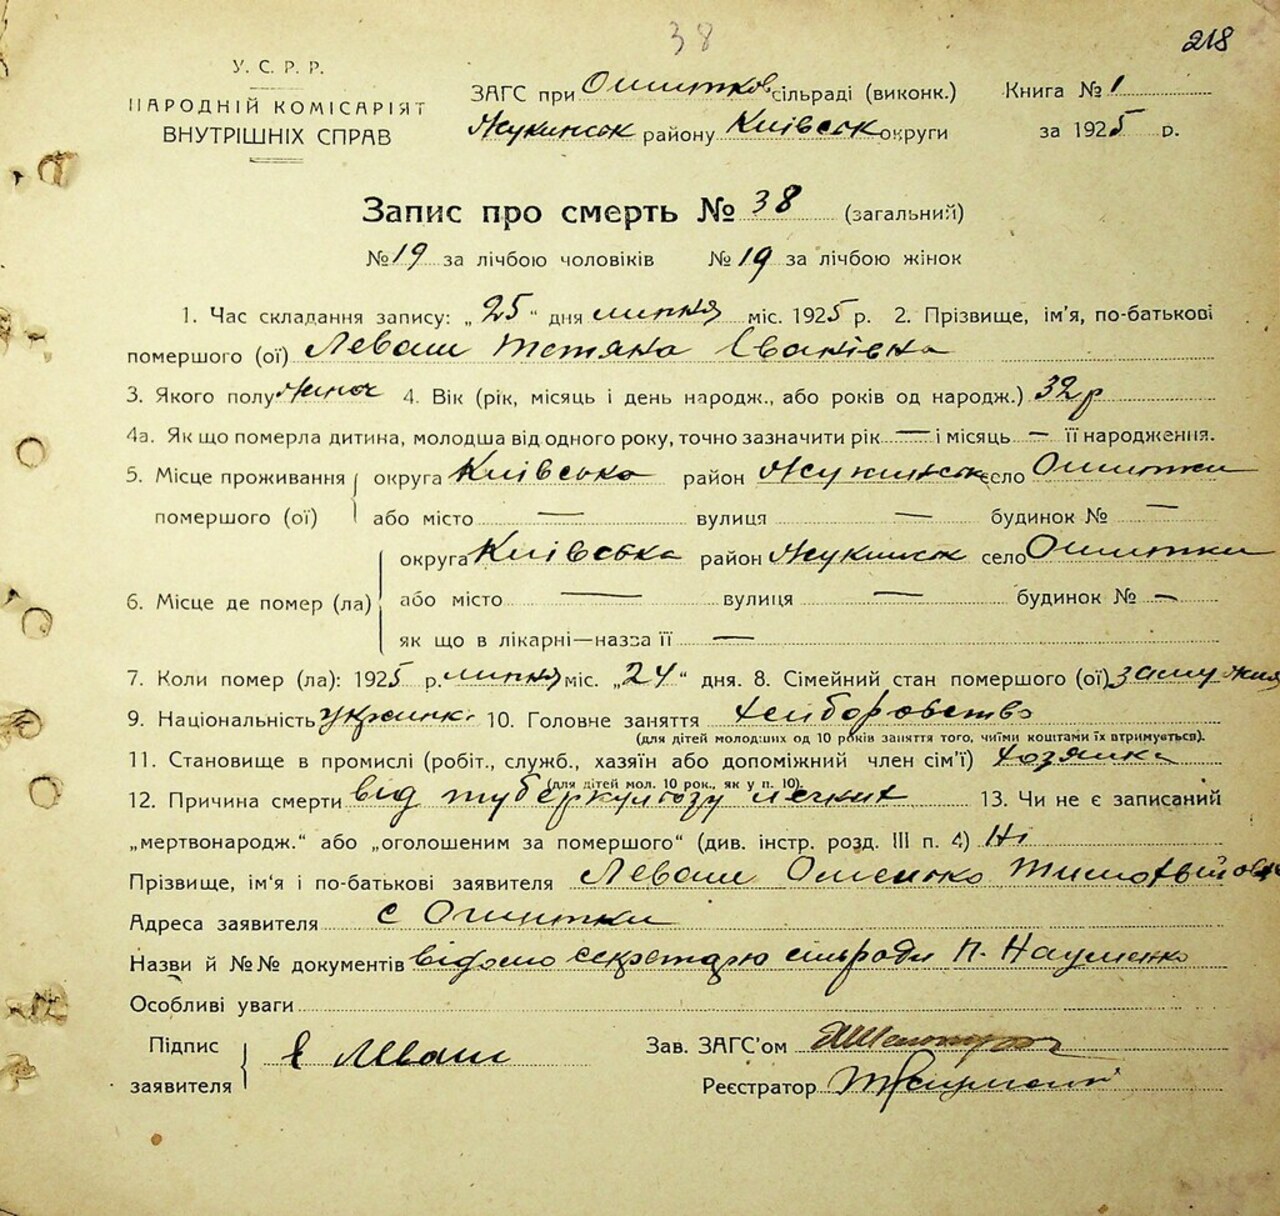 38
218
У. С. Р. Р.
НАРОДНІЙ КОМІСАРІЯТ
ВНУТРІШНІХ СПРАВ
ЗАГС при Ошитков сільраді (виконк.)
Жукинськ району Київськ округи
Книга № 1
за 1925 р.
Запис про смерть № 38 (загальний)
№ 19 за лічбою чоловіків № 19 за лічбою жінок
1. Час складання запису: „25" дня липня міс. 1925 р. 2. Прізвище, ім'я, по-батькові
помершого (ої) Леваш Тетяна Іванівна
3. Якого полу жіноч 4. Вік (рік, місяць і день народж., або років од народж.) 32 р
4а. Як що померла дитина, молодша від одного року, точно зазначити рік — і місяць — її народження.
5. Місце проживання округа Київська район Жукинськ село Ошитки
помершого (ої) або місто — вулиця — будинок № —
округа Київська район Жукинськ село Ошитки
6. Місце де помер (ла) або місто — вулиця — будинок № —
як що в лікарні—назва її —
7. Коли помер (ла): 1925 р. липня міс. „24" дня. 8. Сімейний стан помершого (ої) замужня
9. Національність україн. 10. Головне заняття хліборобство
(для дітей молодших од 10 років заняття того, чиїми коштами їх втримується).
11. Становище в промислі (робіт., служб., хазяїн або допоміжний член сім'ї) хозяйка
(для дітей мол. 10 рок., як у п. 10).
12. Причина смерти від туберкульозу легких 13. Чи не є записаний
„мертвонародж." або „оголошеним за помершого" (див. інстр. розд. III п. 4) Ні
Прізвище, ім'я і по-батькові заявителя Леваш Омелько Тимофійович
Адреса заявителя с Ошитки
Назви й №№ документів відомо секретарю сільради П. Науменко
Особливі уваги
Підпис Я Леваш Зав. ЗАГС'ом
заявителя Реєстратор